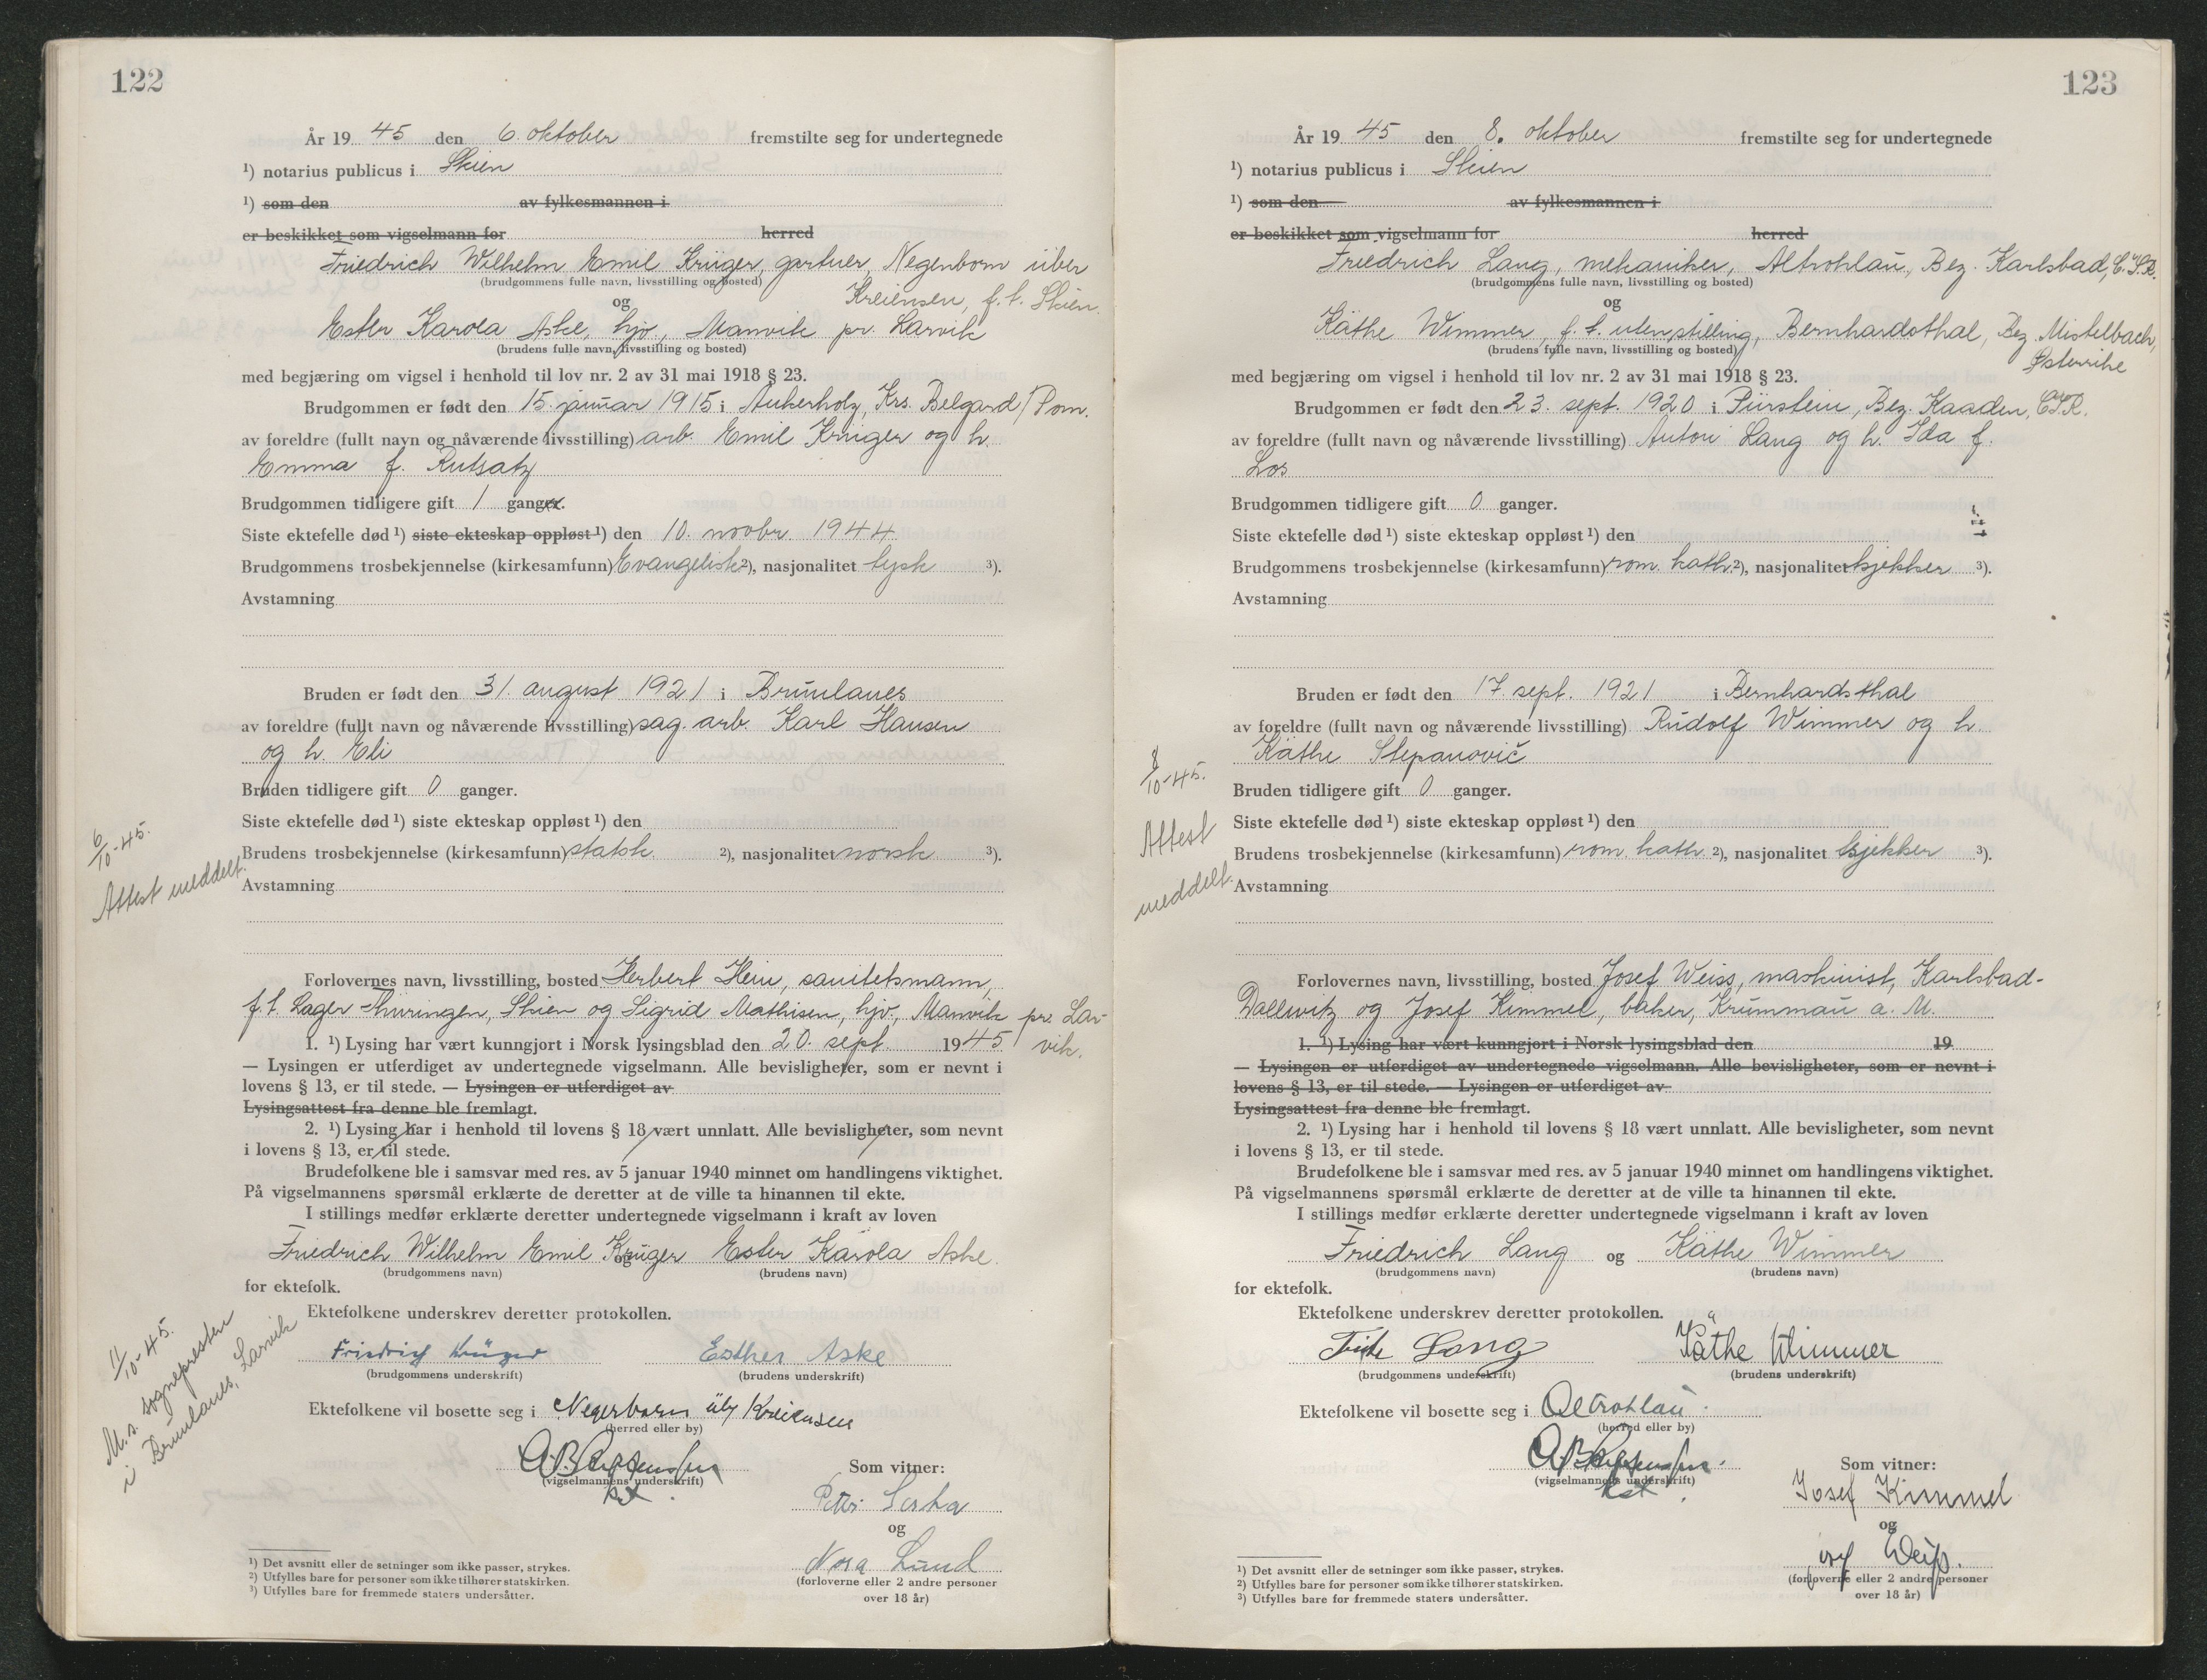 122
År 19 45 den 6. oktober fremstilte seg for undertegnede
¹) notarius publicus i Skien
¹) som den av fylkesmannen i
er beskikket som vigselmann for herred
Friedrich Wilhelm Emil Krüger, gartner, Negenborn über
(brudgommens fulle navn, livsstilling og bosted)
Kreiensen, f.t. Skien.
og
Ester Karola Aske, hjv., Manvik pr. Larvik
(brudens fulle navn, livsstilling og bosted)
med begjæring om vigsel i henhold til lov nr. 2 av 31 mai 1918 § 23.
Brudgommen er født den 15. januar 1915 i Ankerholz, Krs. Belgard/Pom.
av foreldre (fullt navn og nåværende livsstilling) arb. Emil Krüger og h.
Emma f. Rutsatz
Brudgommen tidligere gift 1 ganger.
Siste ektefelle død ¹) siste ekteskap oppløst ¹) den 10. novbr. 1944.
Brudgommens trosbekjennelse (kirkesamfunn) Evangelisk ²), nasjonalitet tysk ³).
Avstamning
Bruden er født den 31. august 1921 i Brunlanes
av foreldre (fullt navn og nåværende livsstilling) sag.arb. Karl Hansen
og h. Eli
Bruden tidligere gift 0 ganger.
Siste ektefelle død ¹) siste ekteskap oppløst ¹) den
6/10-45.
Brudens trosbekjennelse (kirkesamfunn) statsk. ²), nasjonalitet norsk ³).
Attest meddelt.
Avstamning
Forlovernes navn, livsstilling, bosted Herbert Hein, sanitetsmann,
f.t. Lager Thüringen, Skien og Sigrid Mathisen, hjv., Manvik pr. Lar-
vik.
1. ¹) Lysing har vært kunngjort i Norsk lysingsblad den 20. sept. 1945
— Lysingen er utferdiget av undertegnede vigselmann. Alle bevisligheter, som er nevnt i
lovens § 13, er til stede. — Lysingen er utferdiget av
Lysingsattest fra denne ble fremlagt.
2. ¹) Lysing har i henhold til lovens § 18 vært unnlatt. Alle bevisligheter, som nevnt
i lovens § 13, er til stede.
Brudefolkene ble i samsvar med res. av 5 januar 1940 minnet om handlingens viktighet.
På vigselmannens spørsmål erklærte de deretter at de ville ta hinannen til ekte.
I stillings medfør erklærte deretter undertegnede vigselmann i kraft av loven
Friedrich Wilhelm Emil Krüger og Ester Karola Aske.
(brudgommens navn) (brudens navn)
for ektefolk.
Ektefolkene underskrev deretter protokollen.
Friedrich Krüger Esther Aske
(brudgommens underskrift) (brudens underskrift)
11/10-45.
M.s. sognepresten
i Brunlanes, Larvik
Ektefolkene vil bosette seg i Negenborn üb/ Kreiensen
(herred eller by)
(vigselmannens underskrift)
Som vitner:
og
Nora Lund
(forloverne eller 2 andre personer
over 18 år)
¹) Det avsnitt eller de setninger som ikke passer, strykes.
²) Utfylles bare for personer som ikke tilhører statskirken.
³) Utfylles bare for fremmede staters undersåtter.
123
År 19 45 den 8. oktober fremstilte seg for undertegnede
¹) notarius publicus i Skien
¹) som den av fylkesmannen i
er beskikket som vigselmann for herred
Friedrich Lang, mekaniker, Altrohlau, Bez. Karlsbad, C.S.R.
(brudgommens fulle navn, livsstilling og bosted)
og
Käthe Wimmer, f.t. uten stilling, Bernhardsthal, Bez. Mistelbach,
Østerrike
(brudens fulle navn, livsstilling og bosted)
med begjæring om vigsel i henhold til lov nr. 2 av 31 mai 1918 § 23.
Brudgommen er født den 23. sept. 1920 i Pürstein, Bez. Kaaden, CSR.
av foreldre (fullt navn og nåværende livsstilling) Anton Lang og h. Ida f.
Los
Brudgommen tidligere gift 0 ganger.
Siste ektefelle død ¹) siste ekteskap oppløst ¹) den
Brudgommens trosbekjennelse (kirkesamfunn) rom. kath. ²), nasjonalitet tsjekker ³).
Avstamning
Bruden er født den 17. sept. 1921 i Bernhardsthal
av foreldre (fullt navn og nåværende livsstilling) Rudolf Wimmer og h.
Käthe Stepanovič
8/10-45.
Bruden tidligere gift 0 ganger.
Siste ektefelle død ¹) siste ekteskap oppløst ¹) den
Attest
Brudens trosbekjennelse (kirkesamfunn) rom. kath. ²), nasjonalitet tsjekker ³).
meddelt.
Avstamning
Forlovernes navn, livsstilling, bosted Josef Weiss, maskinist, Karlsbad-
Dallwitz og Josef Kimmel, baker, Krummau a. M.
1. ¹) Lysing har vært kunngjort i Norsk lysingsblad den 19
— Lysingen er utferdiget av undertegnede vigselmann. Alle bevisligheter, som er nevnt i
lovens § 13, er til stede. — Lysingen er utferdiget av
Lysingsattest fra denne ble fremlagt.
2. ¹) Lysing har i henhold til lovens § 18 vært unnlatt. Alle bevisligheter, som nevnt
i lovens § 13, er til stede.
Brudefolkene ble i samsvar med res. av 5 januar 1940 minnet om handlingens viktighet.
På vigselmannens spørsmål erklærte de deretter at de ville ta hinannen til ekte.
I stillings medfør erklærte deretter undertegnede vigselmann i kraft av loven
Friedrich Lang og Käthe Wimmer
(brudgommens navn) (brudens navn)
for ektefolk.
Ektefolkene underskrev deretter protokollen.
Lang Käthe Wimmer
(brudgommens underskrift) (brudens underskrift)
Ektefolkene vil bosette seg i Altrohlau.
(herred eller by)
(vigselmannens underskrift)
Som vitner:
Josef Kimmel
og
Josef Weiß.
(forloverne eller 2 andre personer
over 18 år)
¹) Det avsnitt eller de setninger som ikke passer, strykes.
²) Utfylles bare for personer som ikke tilhører statskirken.
³) Utfylles bare for fremmede staters undersåtter.